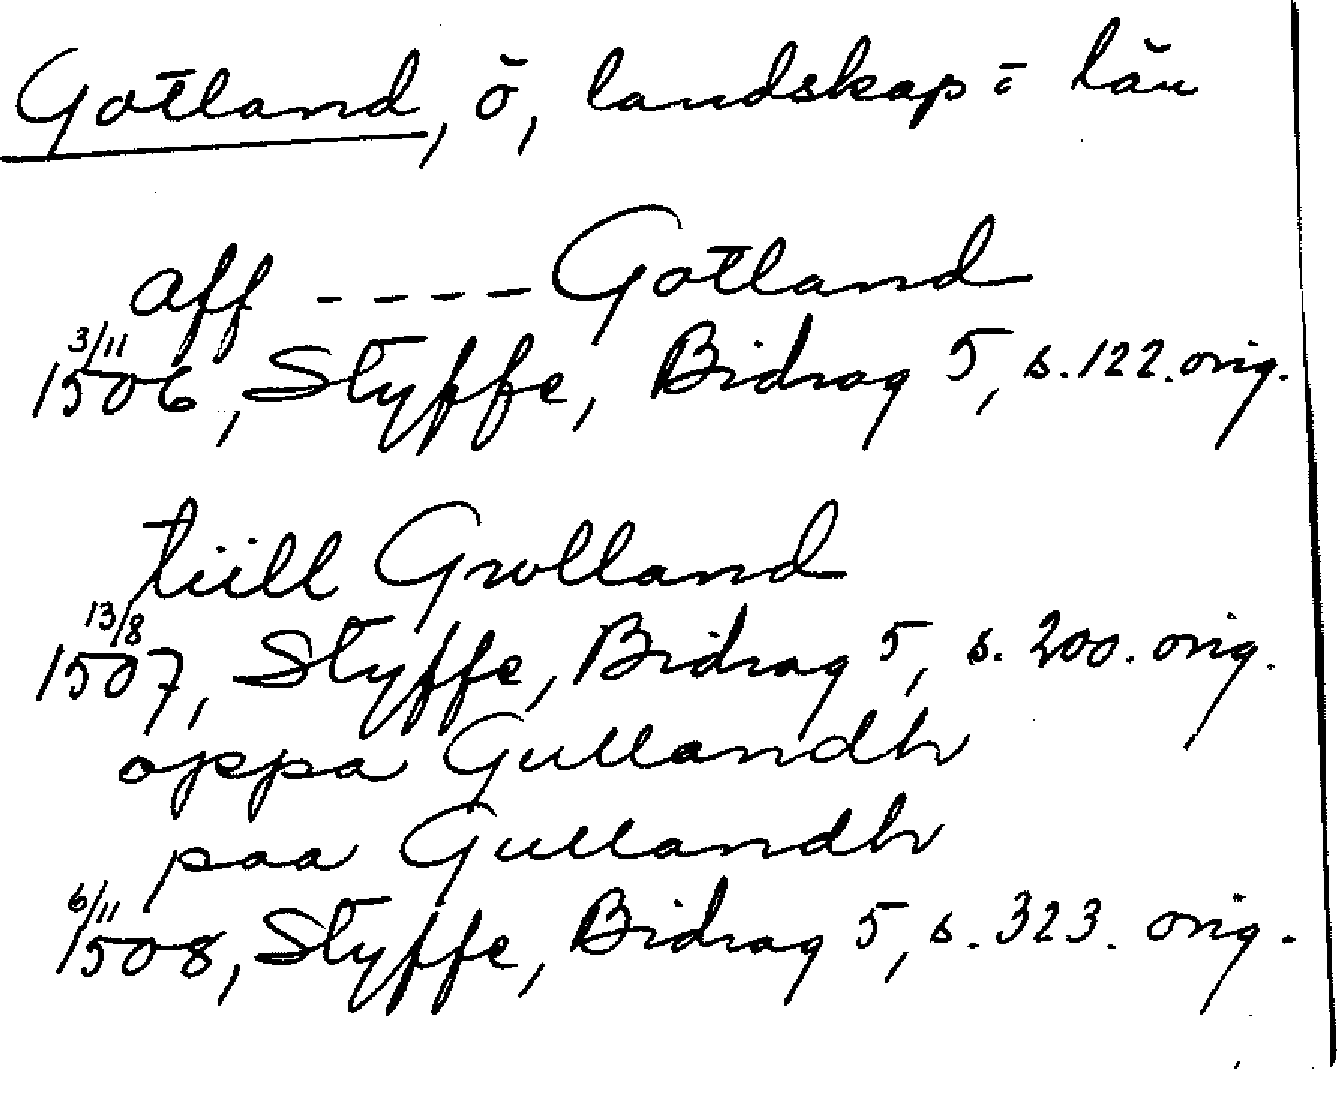 Gotland, ö, landskap = län
aff - - - - Gotland
3/11 1506, Styffe, Bidrag 5, s. 122. orig.
tiill Gwlland
13/8 1507, Styffe, Bidrag 5, s. 200. orig.
oppa Gullandh
paa Gullandh
6/11 1508, Styffe, Bidrag 5, s. 323. orig.